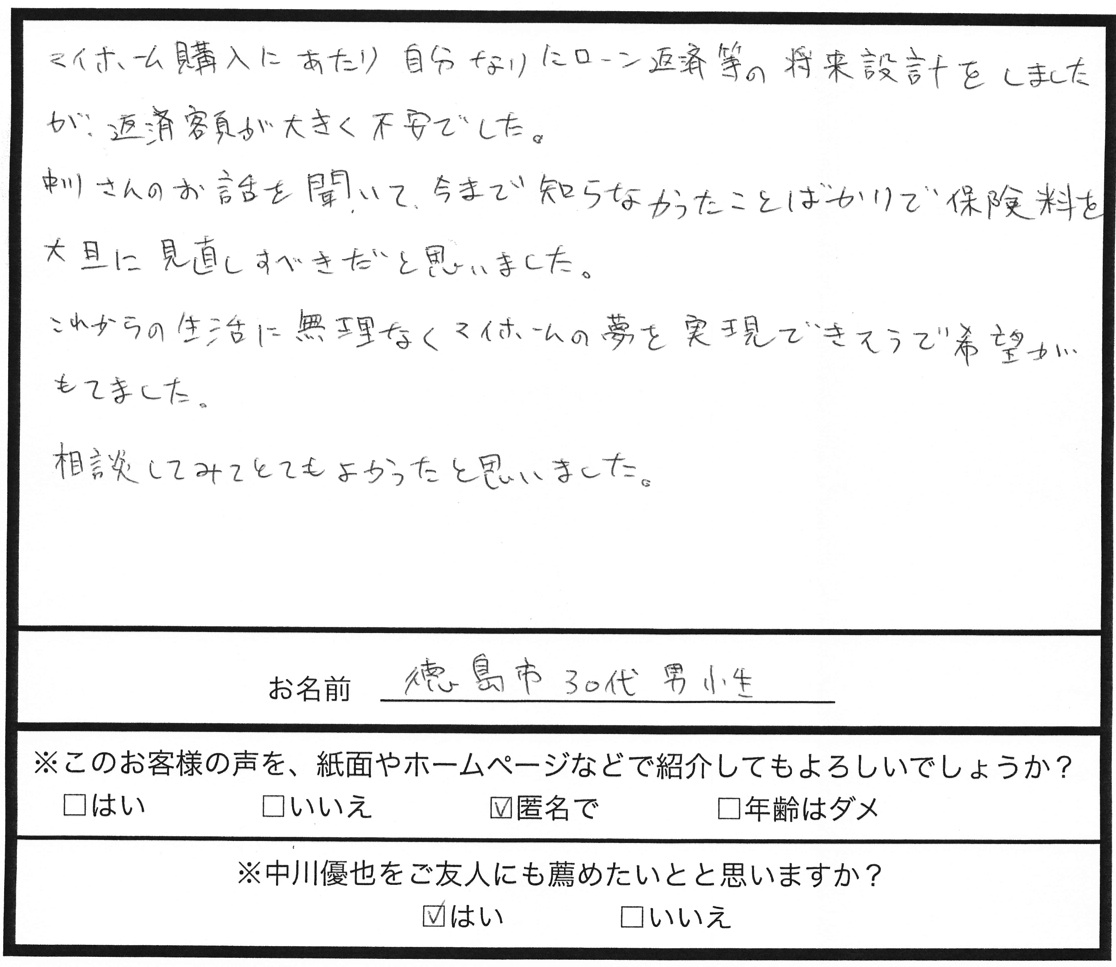 マイホーム購入にあたり自分なりにローン返済等の将来設計をしました
が、返済額が大きく不安でした。
中川さんのお話を聞いて、今まで知らなかったことばかりで保険料を
大旦に見直しすべきだと思いました。
これからの生活に無理なくマイホームの夢を実現できそうで希望が
もてました。
相談してみてとてもよかったと思いました。
お名前 徳島市 30代 男性
※このお客様の声を、紙面やホームページなどで紹介してもよろしいでしょうか？
□はい □いいえ ☑匿名で □年齢はダメ
※中川優也をご友人にも薦めたいとと思いますか？
☑はい □いいえ